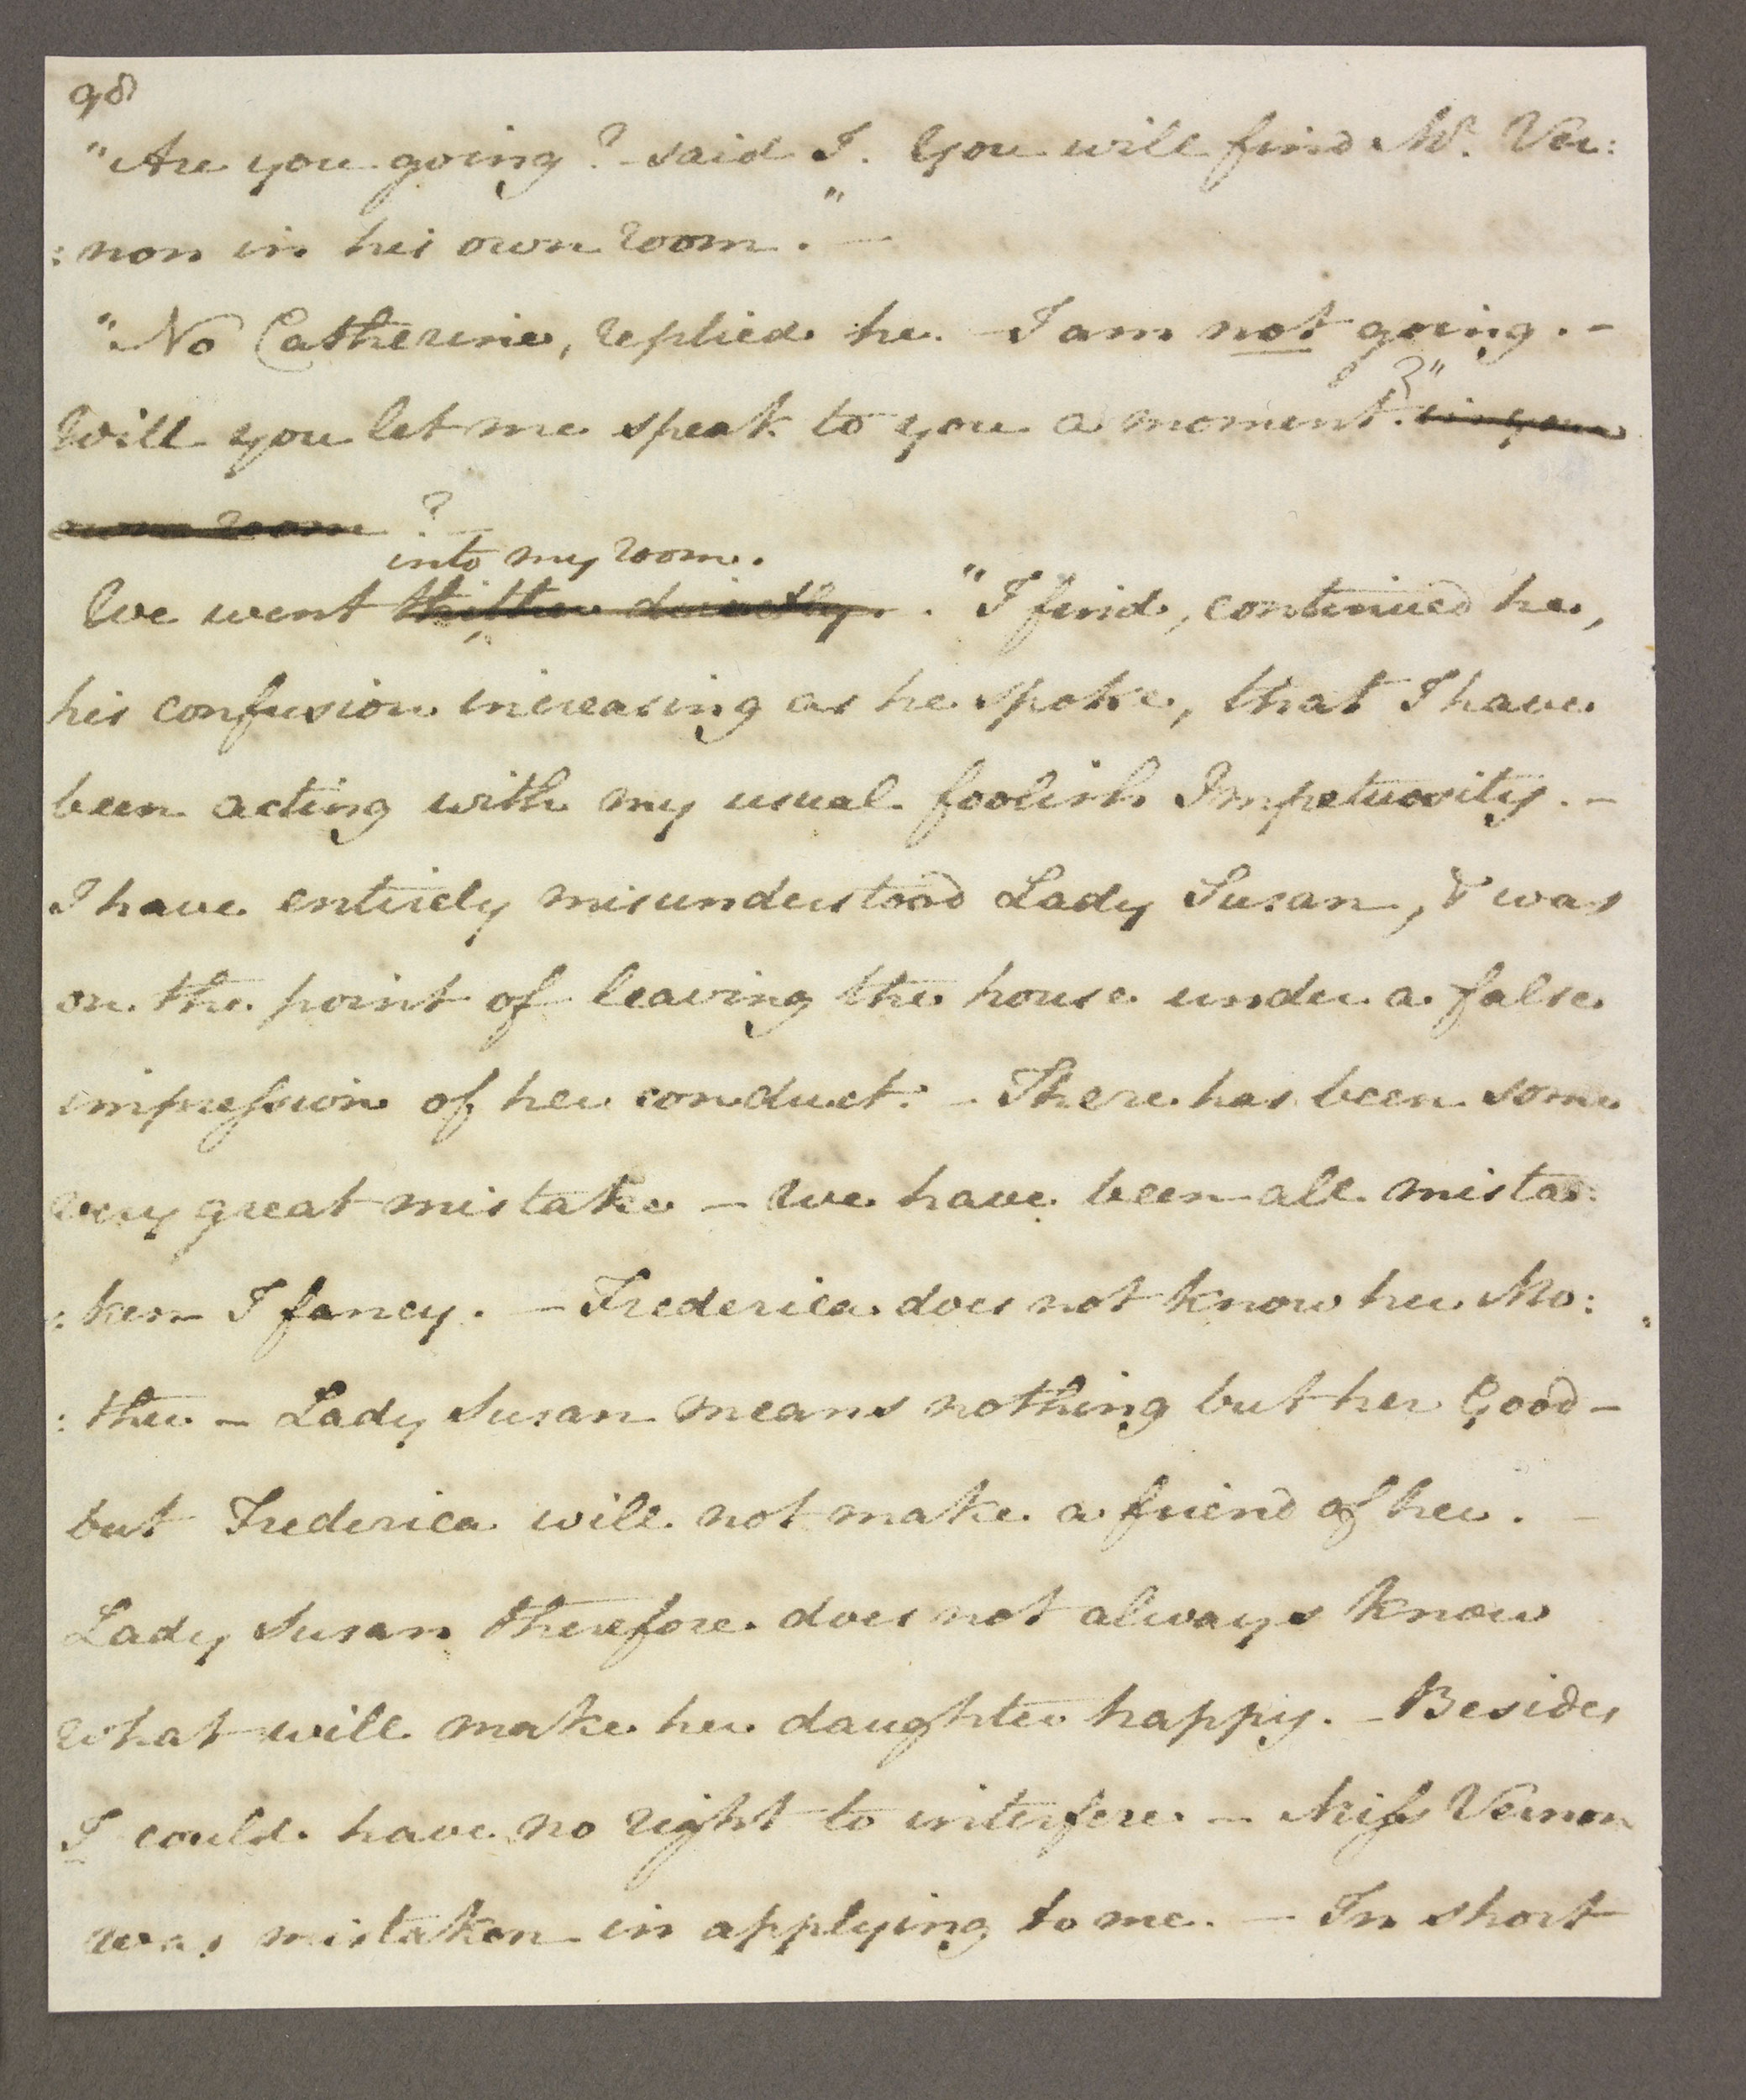 98
"Are you going? said I. You will find Mr. Ver:
:non in his own room." —
"No Catherine, replied he. — I am not going. —
Will you let me speak to you a moment?" in your
own room ?
into my room.
We went thither directly. . "I find, continued he,
his confusion increasing as he spoke, that I have
been acting with my usual foolish Impetuosity. —
I have entirely misunderstood Lady Susan, & was
on the point of leaving the house under a false
impression of her conduct. — There has been some
very great mistake — we have been all mista:
:ken I fancy. — Frederica does not know her Mo:
:ther — Lady Susan means nothing but her Good —
but Frederica will not make a friend of her. —
Lady Susan therefore does not always know
what will make her daughter happy. — Besides
I could have no right to interfere — Miss Vernon
was mistaken in applying to me. — In short